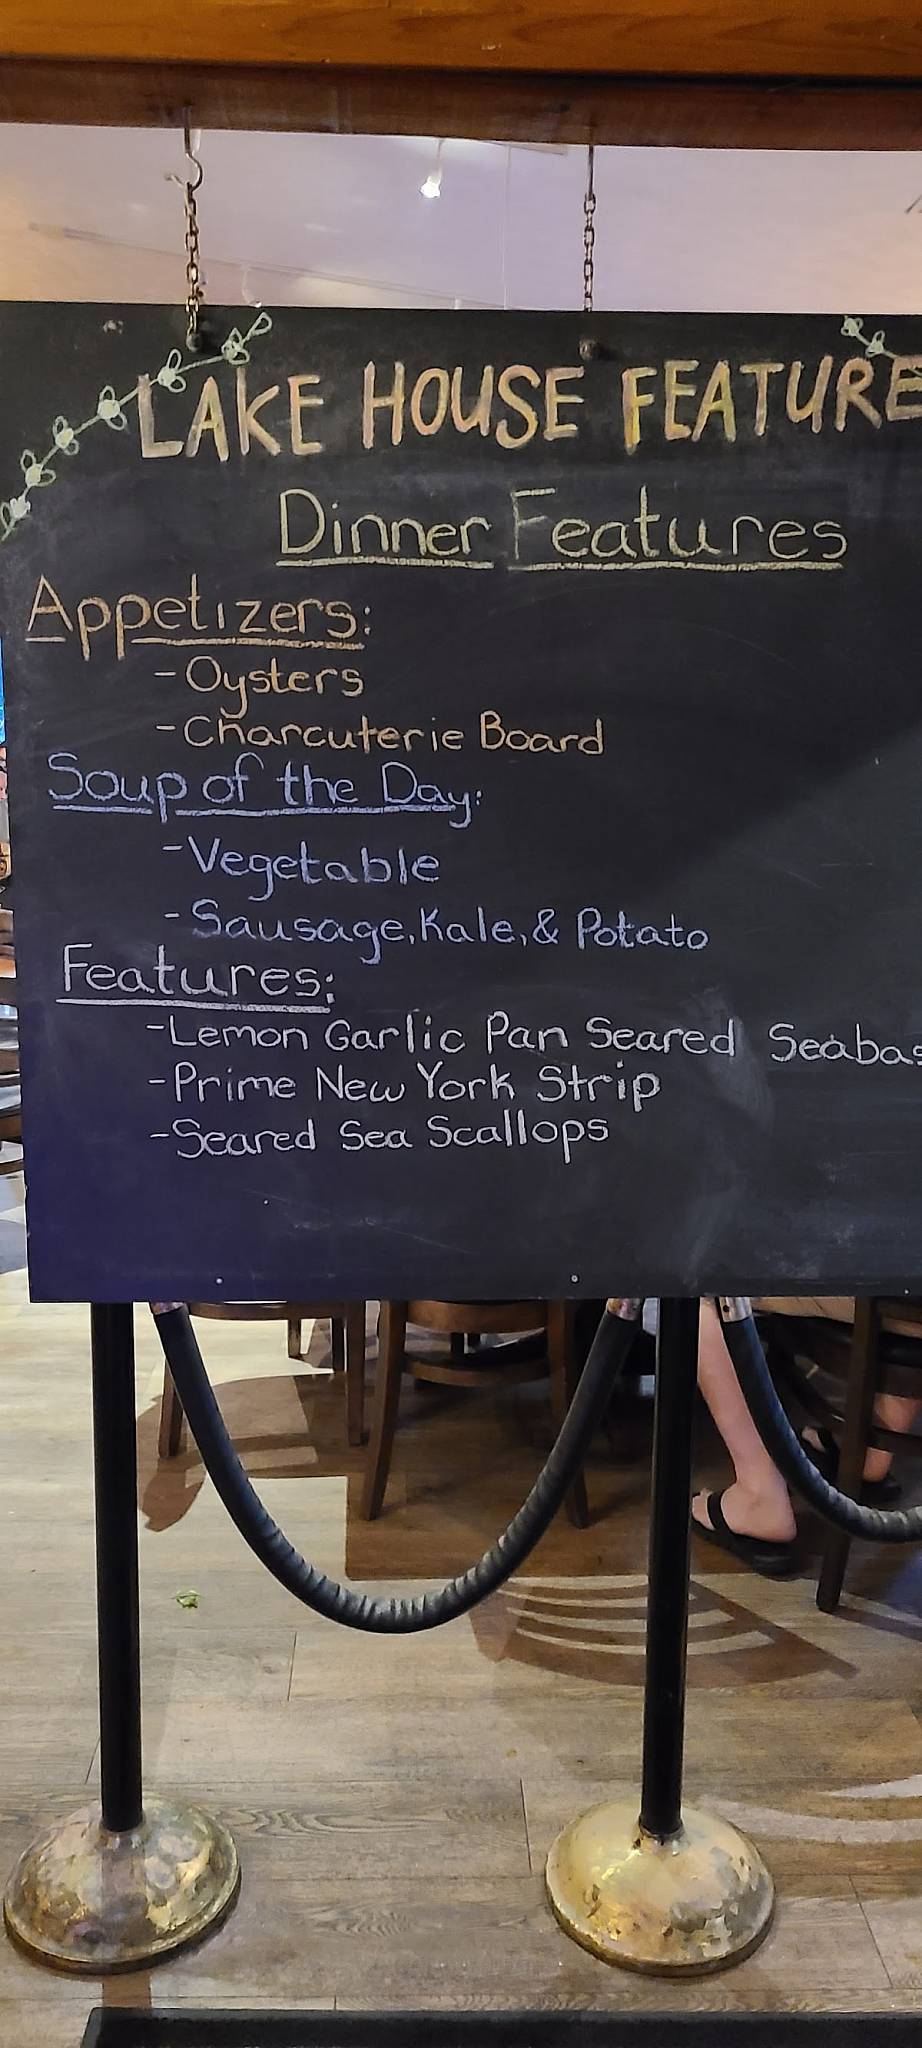 LAKE HOUSE FEATURE
Dinner Features
Appetizers:
-Oysters
-Charcuterie Board
Soup of the Day:
-Vegetable
-Sausage, Kale, & Potato
Features:
-Lemon Garlic Pan Seared Seabas
-Prime New York Strip
-Seared Sea Scallops